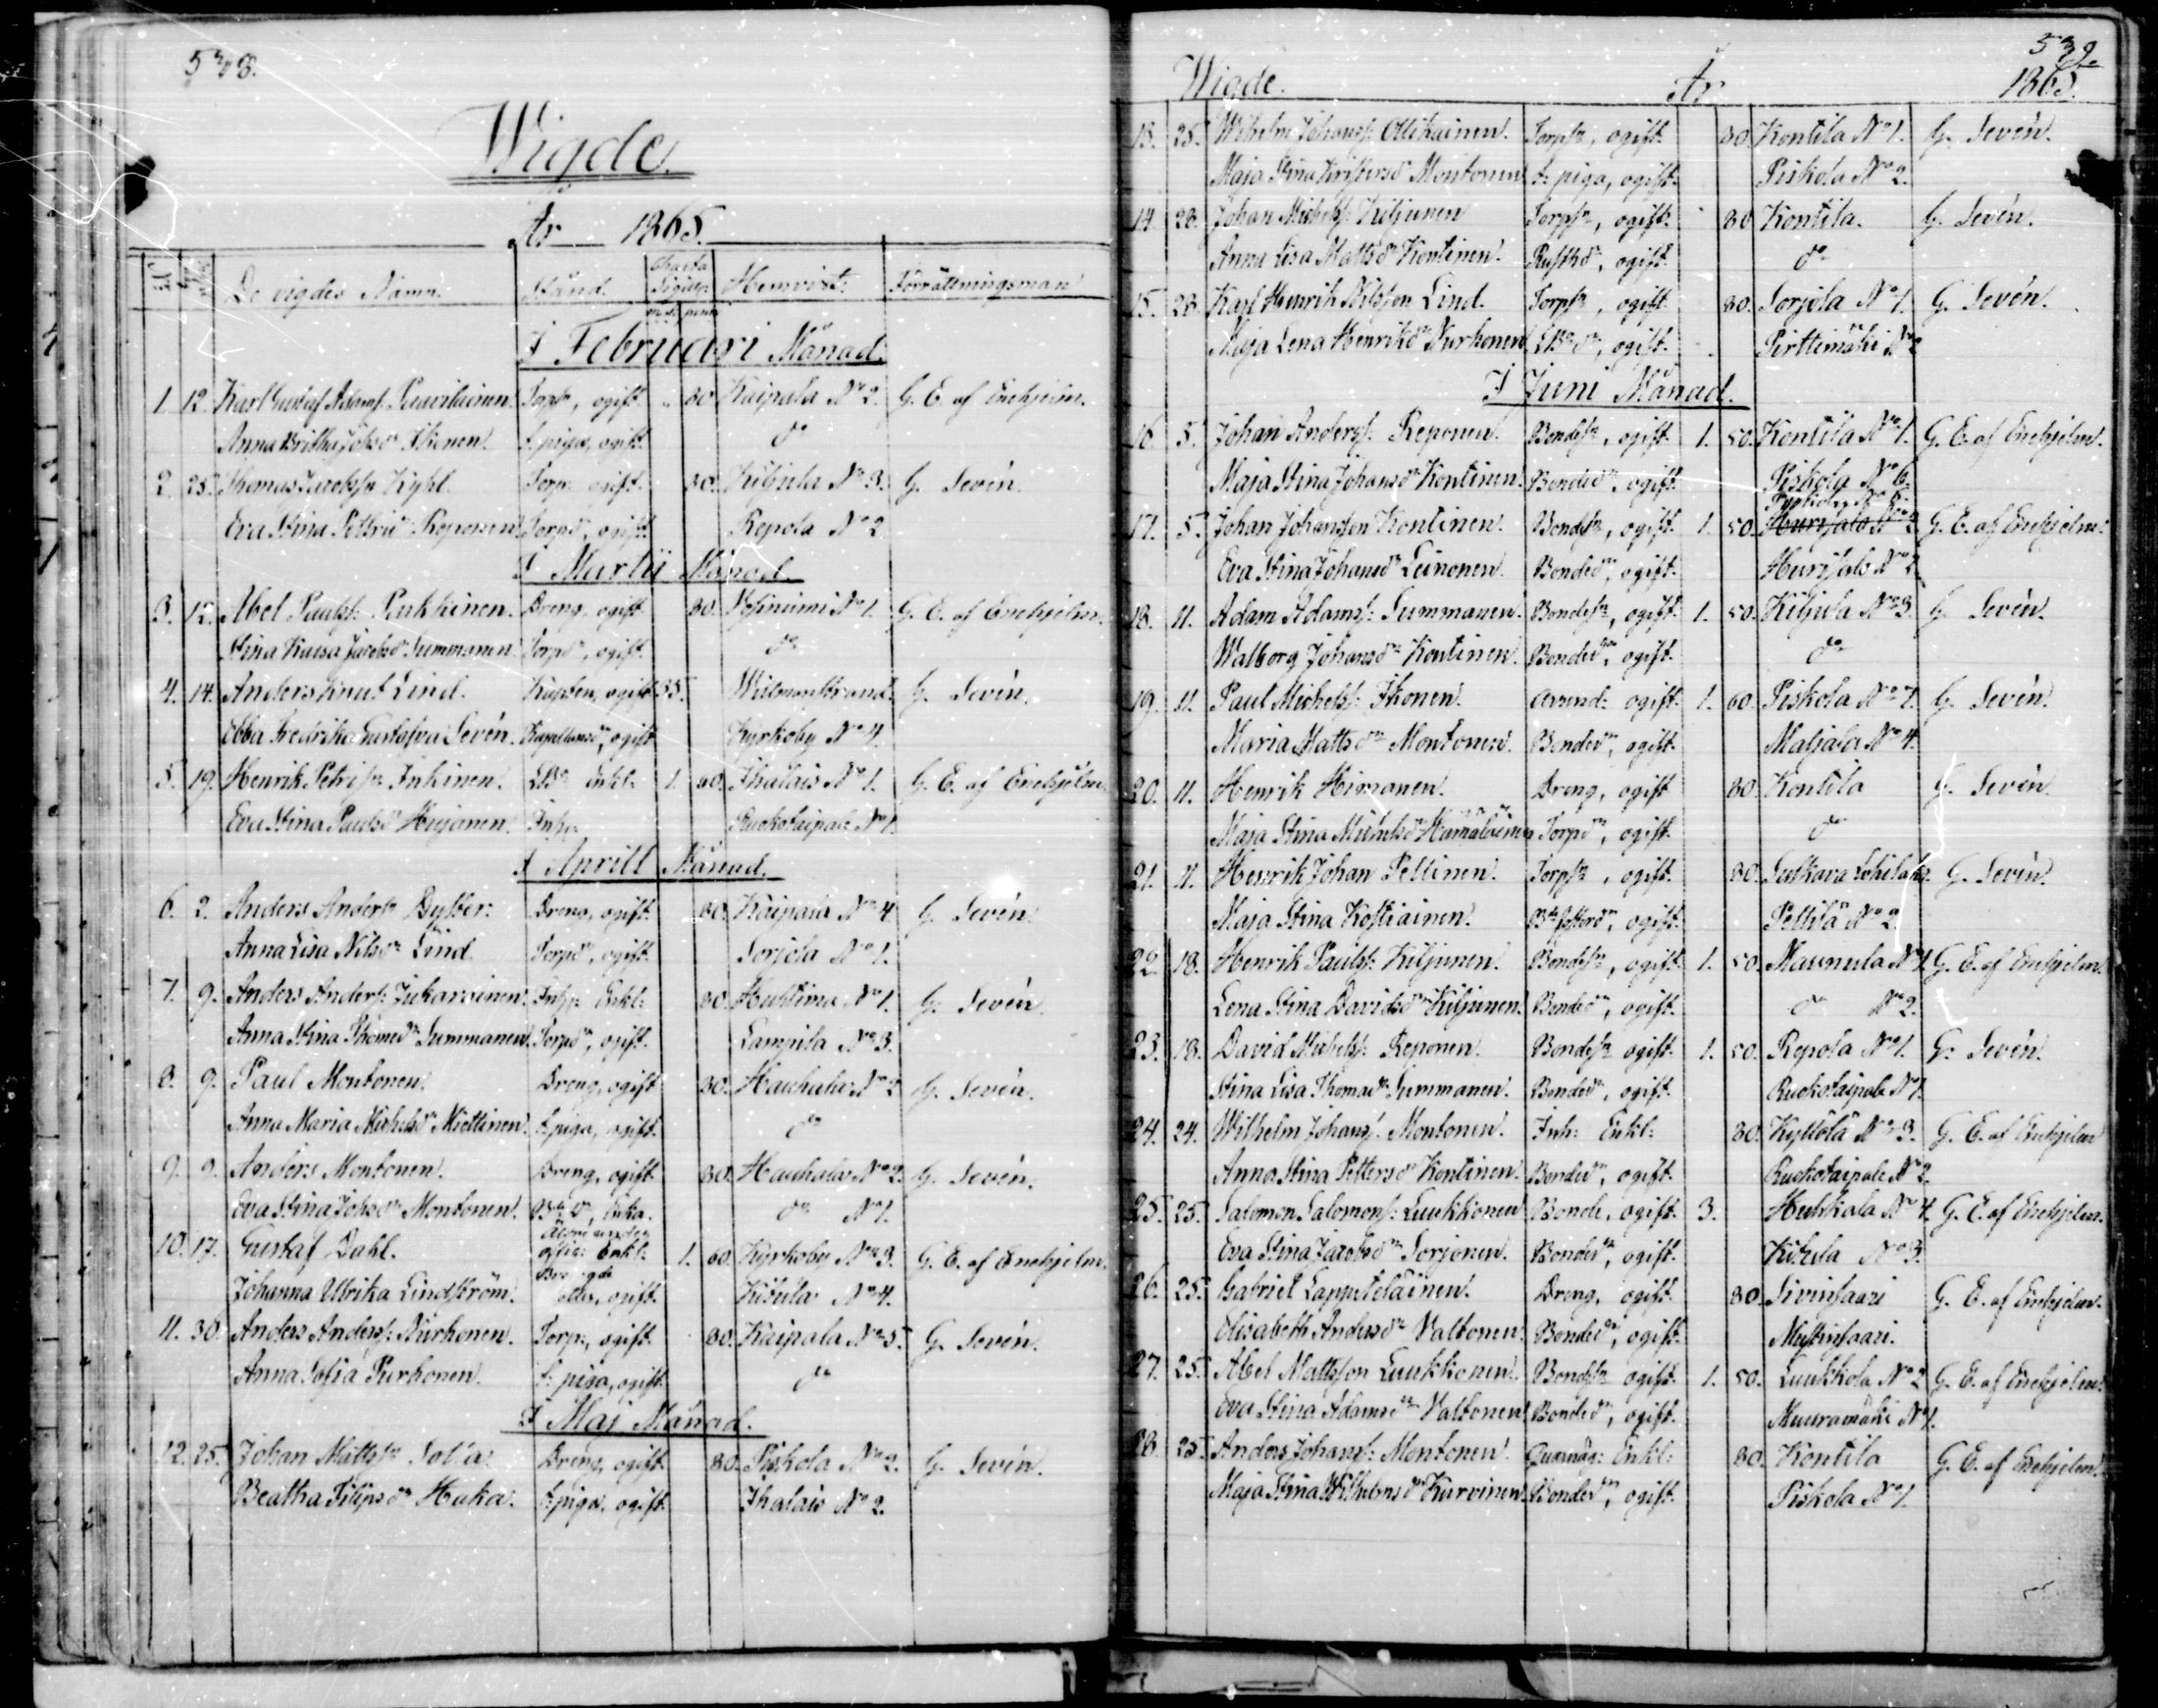 538.
Wigde.
År 1865.
N:o De vigdes Namn. Stånd. Charta Sigill: Hemvist. Förrättningsman
I Februari Månad.
1. 12. Karl Gustaf Adamss. Paavilainen. Torps:n, ogift. 80 Kaipala N:o 2. G. E. af Enehjelm.
Anna Britha Johsd:r Ikonen. t: piga, ogift. d:o
2. 25. Thomas Jacobss:n Kyhl. Torp: ogift. 80. Kiljula N:o 3. G. Sevén.
Eva Stina Pettersd:r Reponen Torpd:r, ogift. Repola N:o 2
I Martii Månad.
3. 12. Abel Paulss: Pukkinen. Dreng, ogift 80. N:o 1. G. E. af Enehjelm.
Stina Kaisa Jacobsd:r Summanen. Torpd:r, ogift. d:o
4. 14. Anders Knut Lind. Kapten, ogift 35. Wilmanstrand. G. Sevén.
Ebba Fredrika Gustafva Sevén. Kapellansd:r, ogift Kyrkoby N:o 4.
5. 19. Henrik Petriss:n Inkinen. Enkl: 1. 20. Ihalais N:o 1. G. E. af Enehjelm.
Eva Stina Paulsd:r Hujanen. Inh: Ruokotaipale N:o 1.
I Aprill Månad.
6. 2. Anders Anderss:n Dylker: Dreng, ogift. 80. Kaipala N:o 4 G. Sevén.
Anna Lisa Nilsd:r Lind Torpd:r, ogift. Sorjola N:o 1.
7. 9. Anders Anderss: Jukarainen. Inh: Enkl: 80. Huhtima N:o 1. G. Sevén.
Anna Stina Thomasd:r Summanen. Torpd:r, ogift. Lampila N:o 3.
8. 9. Paul Montonen. Dreng, ogift 80. Hauhala N:o 2 G. Sevén.
Anna Maria Michelsd:r Miettinen. t: piga, ogift. d:o
9. 9. Anders Montonen. Dreng, ogift 80. Hauhala N:o 2. G. Sevén.
Eva Stina Johsd:r Montonen. Enka. d:o N:o 1.
10. 17. Gustaf Dahl. Enkl: 1. 60. Kyrkoby N:o 3. G. E. af Enehjelm.
Johanna Ulrika Lindström. ogift. Kiljula N:o 4.
11. 30. Anders Anderss: Nurhonen. Torp:, ogift. 80. Kaipala N:o 5. G. Sevén.
Anna Sofia Purhonen. t: piga, ogift. d:o
I Maj Månad.
12. 25. Johan Mattss:n Sota: Dreng, ogift. 80. Piskola N:o 2. G. Sevén.
Beatha Filipsd:r Huka. t: piga, ogift. Ihalais N:o 2.
539.
Wigde. År 1865.
13. 25. Wilhelm Johanss: Ollikainen. Torps:n, ogift. 80. Kontila N:o 1. G. Sevén.
Maja Stina Kristersd:r Montonen t: piga, ogift. Piskola N:o 2.
14. 28. Johan Michelss: Kiljunen Torps:n, ogift. 80 Kontila. G. Sevén.
Anna Lisa Mattsd:r Kontinen. Rusthd:r, ogift. d:o
15. 28. Karl Henrik Nilsson Lind. Torps:n, ogift. 80. Sorjola N:o 1. G. Sevén.
Maja Lena Henriksd:r Nurhonen ogift. Pirttimäki N:o 2
I Juni Månad.
16. 5. Johan Anderss: Reponen. Bondes:n, ogift. 1. 50. Kontila N:o 1. G. E. af Enehjelm.
Maja Stina Johansd:r Kontinen. Bonded:r, ogift. Piskola N:o 6.
17. 5. Johan Johansson Kontinen. Bondes:n, ogift. 1. 50. Hurisalo N:o 2 G. E. af Enehjelm.
Eva Stina Johansd:r Leinonen. Bonded:r, ogift. Hurisalo N:o 2
18. 11. Adam Adamss: Summanen. Bondes:n, ogift. 1. 50. Kiljula N:o 3. G. Sevén.
Walborg Johansd:r Kontinen. Bonded:r, ogift. d:o
19. 11. Paul Michelss: Ikonen. Arrend: ogift. 1. 60. Piskola N:o 7. G. Sevén.
Maria Mattsd:r Montonen. Bonded:r, ogift. Maljala N:o 4.
20. 11. Henrik Himanen. Dreng, ogift 80. Kontila G. Sevén.
Maja Stina Michelsd:r Hämäläinen Torpd:r, ogift. d:o
21. 11. Henrik Johan Peltinen. Torps:n, ogift. 80. G. Sevén.
Maja Stina Kostiainen. ogift. Peltilä N:o 2.
22. 18. Henrik Paulss: Kiljunen. Bondes:n, ogift. 1. 50. Maunula N:o 1. G. E. af Enehjelm.
Lena Stina Davidsd:r Kiljunen. Bonded:r, ogift. d:o N:o 2.
23. 18. David Michelss: Reponen. Bondes:n ogift. 1. 50. Repola N:o 1. G. Sevén.
Stina Lisa Thomasd:r Summanen. Bonded:r, ogift. Ruokotaipale N:o 1.
24. 24. Wilhelm Johanss: Montonen. Inh: Enkl: 80. Kyllölä N:o 3. G. E. af Enehjelm
Anna Stina Pettersd:r Kontinen. Bonded:r, ogift. Ruokotaipale N:o 2.
25. 25. Salomon Salomonss: Luukkonen Bonde, ogift. 3. Huhkala N:o 4. G. E. af Enehjelm.
Eva Stina Jacobsd:r Sorjonen. Bonded:r, ogift. Kiljula N:o 3.
26. 25. Gabriel Lappeteläinen. Dreng, ogift. 80. Sivinsaari G. E. af Enehjelm.
Elisabeth Andersd:r Valtonen. Bonded:r, ogift. Mustinsaari.
27. 25. Abel Mattsson Luukkonen. Bondes:n ogift. 1. 50. Luukkola N:o 2 G. E. af Enehjelm.
Eva Stina Adamsd:r Valtonen. Bonded:r, ogift. Muuramäki N:o 1.
28. 25. Anders Johanss: Montonen. Enkl: 80. Kontila G. E. af Enehjelm.
Maja Stina Wilhelmsd:r Karvinen. Bonded:r, ogift. Piskola N:o 1.